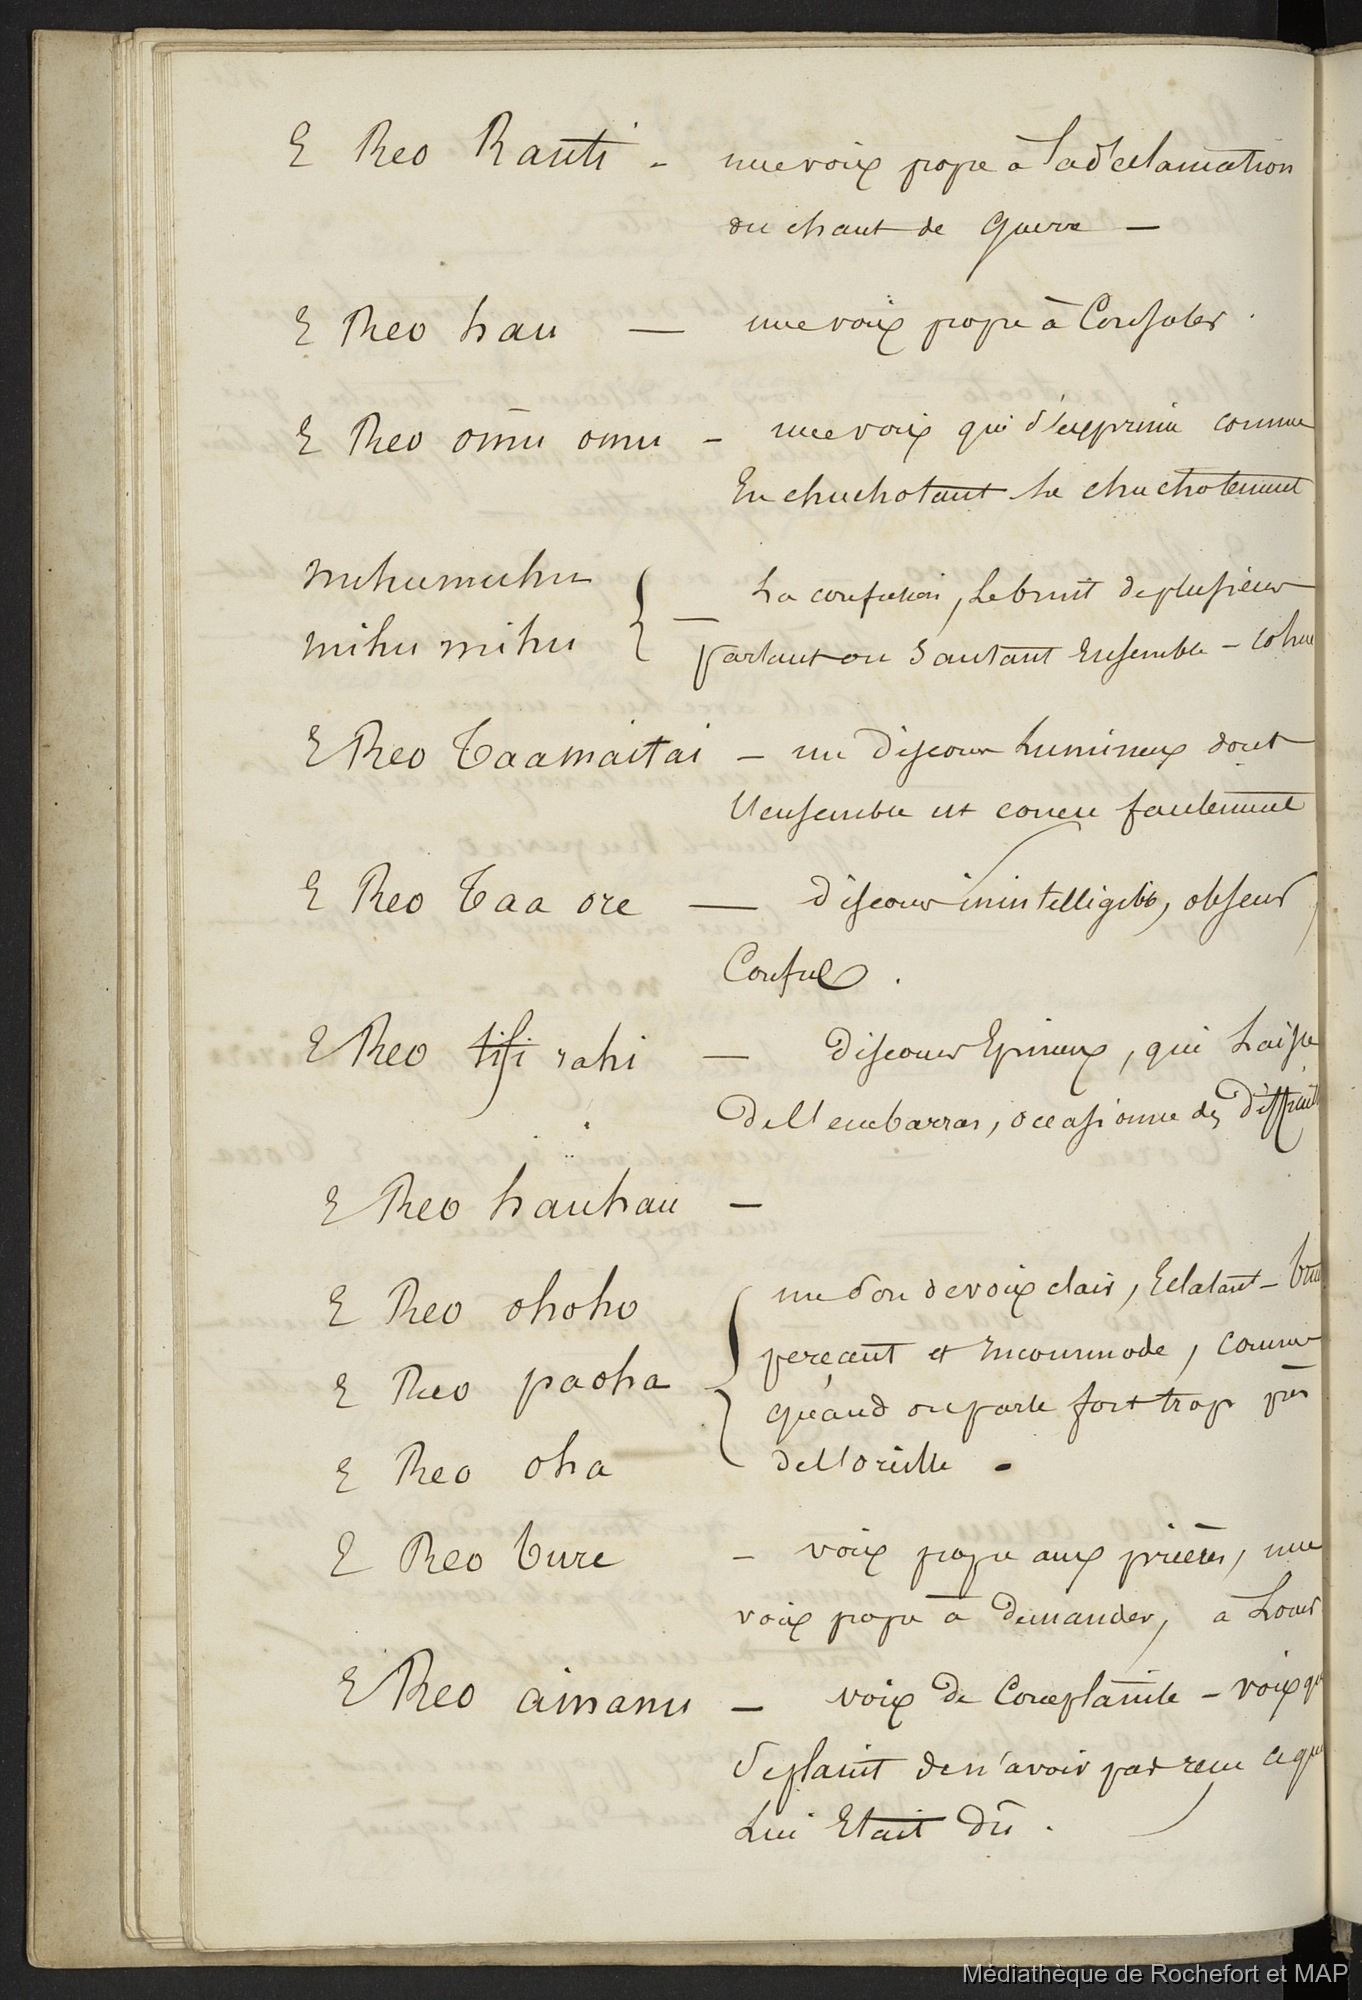 E Reo Rauti - une voix propre à la déclamation
du chant de Guerre —
E Reo hau — une voix propre à Consoler.
E Reo omu omu - une voix qui s'exprime comme
En chuchotant le chuchotement
muhumuhu
mihu mihu
La confusion, Le bruit de plusieurs
parlant ou Sautant Ensemble - cohue
E Reo Taamaitai - un Discours Lumineux dont
l'ensemble est concu facilement
E Reo Taa ore — Discours inintelligible, obscur,
Confus.
E Reo fifi rahi — Discours Epineux, qui Laisse
De l'embarras, occasionne des Difficult
E Reo hauhau —
E Reo ohoho
E Reo paoha
E Reo oha
un son de voix clair, Eclatant - bruit
percant et Incommode, comme
quand on parle fort trop près
de l'oreille.
E Reo Ture - voix propre aux prières, une
voix propre à Demander, à Louer
E Reo ainanu - voix De Complainte - voix qui
Se plaint de n'avoir pas recu ce que
Lui Etait Dû.
Médiathèque de Rochefort et MAP